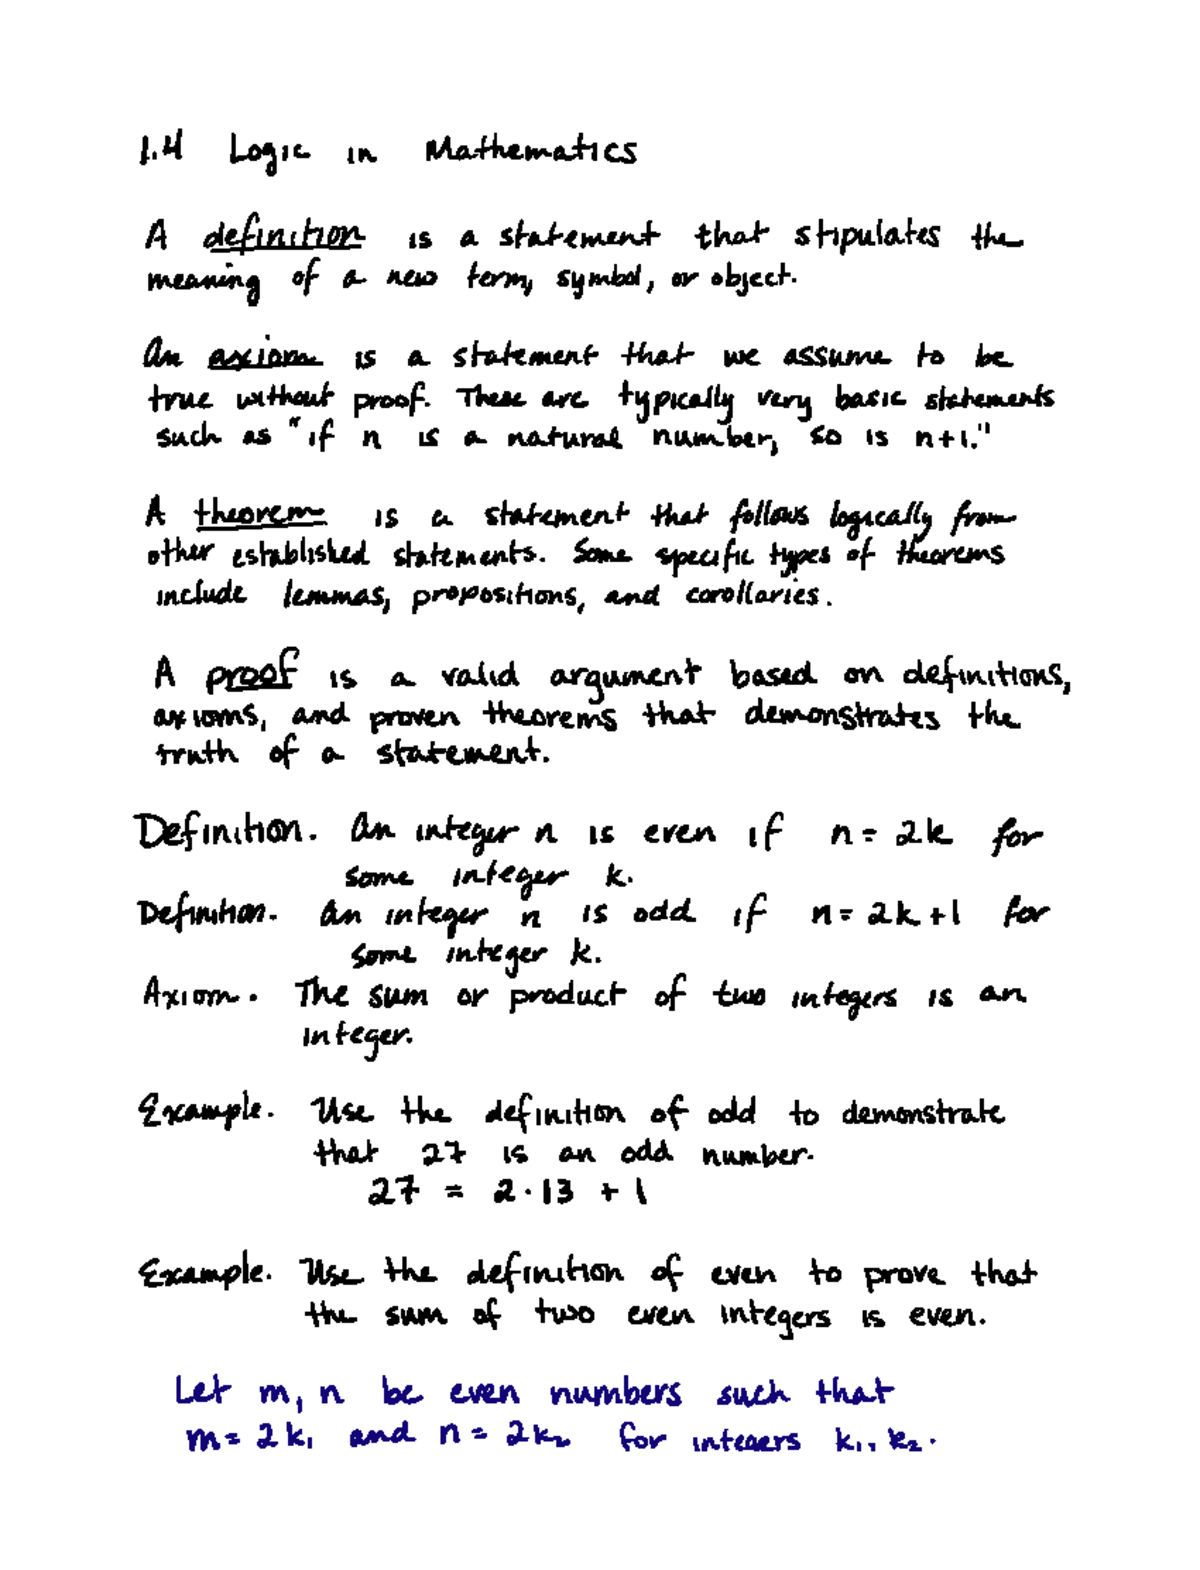 1.4 Logic in Mathematics
A definition is a statement that stipulates the
meaning of a new term, symbol, or object.
An axiom is a statement that we assume to be
true without proof. These are typically very basic statements
such as "if n is a natural number, so is n+1."
A theorem is a statement that follows logically from
other established statements. Some specific types of theorems
include lemmas, propositions, and corollaries.
A proof is a valid argument based on definitions,
axioms, and proven theorems that demonstrates the
truth of a statement.
Definition. An integer n is even if n = 2k for
some integer k.
Definition. An integer n is odd if n = 2k+1 for
some integer k.
Axiom. The sum or product of two integers is an
integer.
Example. Use the definition of odd to demonstrate
that 27 is an odd number.
27 = 2·13 + 1
Example. Use the definition of even to prove that
the sum of two even integers is even.
Let m, n be even numbers such that
m = 2k₁ and n = 2k₂ for integers k₁, k₂.